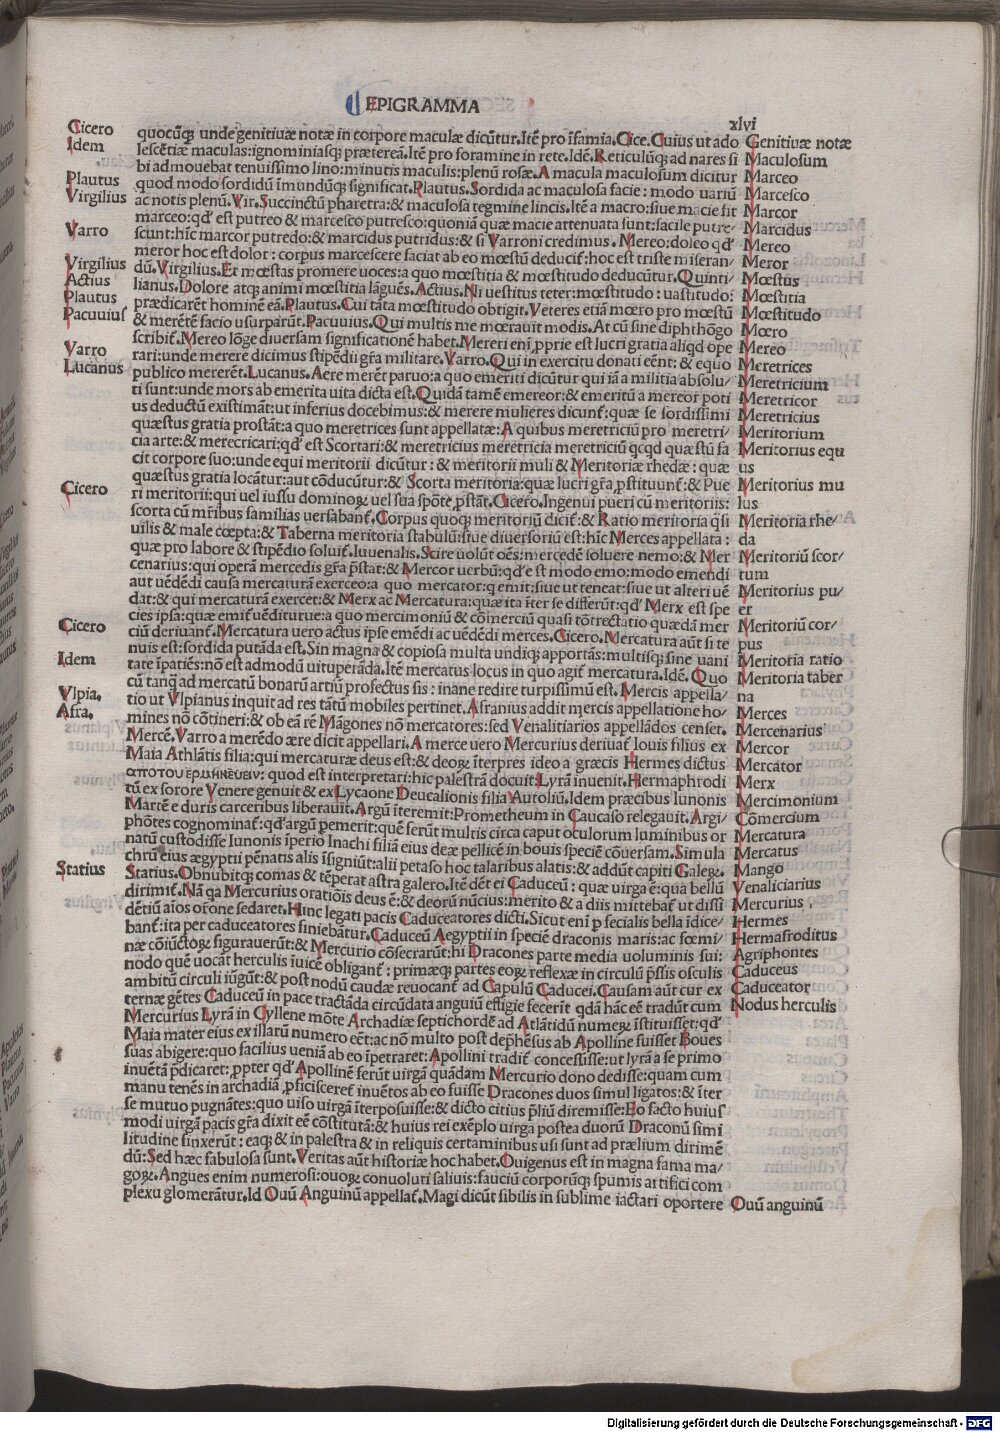 EPIGRAMMA
xlvi
Cicero
Idem
Plautus
Virgilius
Varro
Virgilius
Actius
Plautus
Pacuuius
Varro
Lucanus
Cicero
Cicero
Idem
Vlpia.
Afra.
Statius
quocūqꝫ unde genitiuæ notæ in corpore maculæ dicūtur. Itē pro īfamia. Cice. Cuius ut ado
lescētiæ maculas: ignominiasqꝫ præterea. Itē pro foramine in rete. Idē. Reticulūqꝫ ad nares si
bi admouebat tenuissimo lino: minutis maculis: plenū rosæ. A macula maculosum dicitur
quod modo sordidū īmundūqꝫ significat. Plautus. Sordida ac maculosa facie: modo uariū
ac notis plenū. Vir. Succinctū pharetra: & maculosa tegmine lincis. Itē a macro: siue macie fit
marceo: qđ est putreo & marcesco putresco: quoniā quæ macie attenuata sunt: facile putre/
scunt: hīc marcor putredo: & marcidus putridus: & si Varroni credimus. Mereo: doleo qđ
meror hoc est dolor: corpus marcescere faciat ab eo mœstū deduciť: hoc est triste miseran/
dū. Virgilius. Et mœstas promere uoces: a quo mœstitia & mœstitudo deducūtur. Quinti/
lianus. Dolore atqꝫ animi mœstitia lāguēs. Actius. Ni uestitus teter: mœstitudo: uastitudo:
prædicarēt hominē eā. Plautus. Cui tāta mœstitudo obtigit. Veteres etiā mœro pro mœstū
& merētē facio usurparūt. Pacuuius. Qui multis me mœrauit modis. At cū sine diphthōgo
scribiť. Mereo lōge diuersam significationē habet. Mereri enī ꝓprie est lucri gratia aliqđ ope
rari: unde merere dicimus stipēdii gr̄a militare. Varro. Qui in exercitu donati eēnt: & equo
publico mererēt. Lucanus. Aere merēt paruo: a quo emeriti dicūtur qui iā a militia absolu/
ti sunt: unde mors ab emerita uita dicta est. Quidā tamē emereor: & emeritū a mereor poti
us deductū existimāt: ut inferius docebimus: & merere mulieres dicunť: quæ se sordissimi
quæstus gratia prostāt: a quo meretrices sunt appellatæ: A quibus meretriciū pro meretri/
cia arte: & merecricari: qđ est Scortari: & meretricius meretricia meretriciū qcqđ quæstū fa
cit corpore suo: unde equi meritorii dicūtur: & meritorii muli & Meritoriæ rhedæ: quæ
quæstus gratia locātur: aut cōducūtur: & Scorta meritoria: quæ lucri gr̄a ꝓstituunť: & Pue
ri meritorii: qui uel iussu dominoꝝ uel sua spōte ꝓstāt. Cicero. Ingenui pueri cū meritoriis:
scorta cū mr̄ibus familias uersabanť. Corpus quoqꝫ meritoriū diciť: & Ratio meritoria q̄si
uilis & male cœpta: & Taberna meritoria stabulū: siue diuersoriū est: hīc Merces appellata:
quæ pro labore & stipēdio soluiť. Iuuenalis. Scire uolūt oēs: mercedē soluere nemo: & Mer
cenarius: qui operā mercedis gr̄a p̄stat: & Mercor uerbū: qđ est modo emo: modo emendi
aut uēdēdi causa mercaturā exerceo: a quo mercator: q emit: siue ut teneat: siue ut alteri uē
dat: & qui mercaturā exercet: & Merx ac Mercatura: quæ ita īter se differūt: qđ Merx est spe
cies ipsa: quæ emiť uēditurue: a quo mercimoniū & cōmerciū quasi tōrrectatio quædā mer
ciū deriuanť. Mercatura uero actus ipse emēdi ac uēdēdi merces. Cicero. Mercatura aūt si te
nuis est: sordida putāda est. Sin magna & copiosa multa undiqꝫ apportās: multisqꝫ sine uani
tate īpatiēs: nō est admodū uituperāda. Itē mercatus locus in quo agiť mercatura. Idē. Quo
cū tanq̄ ad mercatū bonarū artiū profectus sis: inane redire turpissimū est. Mercis appella/
tio ut Vlpianus inquit ad res tātū mobiles pertinet. Afranius addit mercis appellatione ho/
mines nō cōtineri: & ob eā rē Māgones nō mercatores: sed Venalitiarios appellādos censet.
Mercē. Varro a merēdo ære dicit appellari. A merce uero Mercurius deriuať Iouis filius ex
Maia Athlātis filia: qui mercaturæ deus est: & deoꝝ īterpres ideo a græcis Hermes dictus
απο του ερμηνευειν: quod est interpretari: hic palestrā docuit: Lyrā inuenit. Hermaphrodi
tū ex sorore Venere genuit & ex Lycaone Deucalionis filia Autoliū. Idem præcibus Iunonis
Martē e duris carceribus liberauit. Argū īteremit: Prometheum in Caucaso relegauit. Argi/
phōtes cognominať: qđ argū pemerit: quē ferūt multis circa caput oculorum luminibus or
natū custodisse Iunonis īperio Inachi filiā eius deæ pellicē in bouis speciē cōuersam. Simula
chrū eius ægyptii pēnatis alis īsigniūt: alii petaso hoc talaribus alatis: & addūt capiti Galeꝝ.
Statius. Obnubitqꝫ comas & tēperat astra galero. Itē dēt ei Caduceū: quæ uirga ē: qua bellū
dirimiť. Nā qa Mercurius orationis deus ē: & deorū nūcius: merito & a diis mittebať ut dissi
dētiū aīos orōne sedaret. Hinc legati pacis Caduceatores dicti. Sicut enī p fecialis bella īdice/
banť: ita per caduceatores finiebātur. Caduceū Aegyptii in speciē draconis maris: ac fœmi/
næ cōiūctoꝝ figurauerūt: & Mercurio cōsecrarūt: hi Dracones parte media uoluminis sui:
nodo quē uocāt herculis iuicē obliganť: primæqꝫ partes eoꝝ reflexæ in circulū p̄ssis osculis
ambitū circuli iūgūt: & post nodū caudæ reuocanť ad Capulū Caducei. Causam aūt cur ex
ternæ gētes Caduceū in pace tractāda circūdata anguiū effigie fecerīt qdā hāc eē tradūt cum
Mercurius Lyrā in Cyllene mōte Archadiæ septichordē ad Atlātidū numeꝝ īstituisset: qđ
Maia mater eius ex illarū numero eēt: ac nō multo post depħēsus ab Apolline fuisset Boues
suas abigere: quo facilius ueniā ab eo īpetraret: Apollini tradiť concessisse: ut lyrā a se primo
inuētā p̄dicaret: ꝓpter qđ Apollinē ferūt uirgā quādam Mercurio dono dedisse: quam cum
manu tenēs in archadiā ꝓficisceret inuētos ab eo fuisse Dracones duos simul ligatos: & īter
se mutuo pugnātes: quo uiso uirgā īterposuisse: & dicto citius p̄liū diremisse: Eo facto huius
modi uirgā pacis gr̄a dixit eē cōstitutā: & huius rei exēplo uirga postea duorū Draconū simi
litudine finxerūt: eaqꝫ & in palestra & in reliquis certaminibus usi sunt ad prælium dirimē
dū: Sed hæc fabulosa sunt. Veritas aūt historiæ hoc habet. Ouigenus est in magna fama ma/
goꝝ. Angues enim numerosi: ouoꝝ conuoluti saliuis: fauciū corporūqꝫ spumis artifici com
plexu glomerātur. Id Ouū Anguinū appellať. Magi dicūt sibilis in sublime iactari oportere
Genitiuæ notæ
Maculosum
Marceo
Marcesco
Marcor
Marcidus
Mereo
Meror
Mœstus
Mœstitia
Mœstitudo
Mœro
Mereo
Meretrices
Meretricium
Meretricor
Meretricius
Meritorium
Meritorius equ
us
Meritorius mu
lus
Meritoria rhe/
da
Meritoriū scor/
tum
Meritorius pu/
er
Meritoriū cor/
pus
Meritoria ratio
Meritoria taber
na
Merces
Mercenarius
Mercor
Mercator
Merx
Mercimonium
Cōmercium
Mercatura
Mercatus
Mango
Venaliciarius
Mercurius
Hermes
Hermafroditus
Agriphontes
Caduceus
Caduceator
Nodus herculis
Ouū anguinū
Digitalisierung gefördert durch die Deutsche Forschungsgemeinschaft - DFG